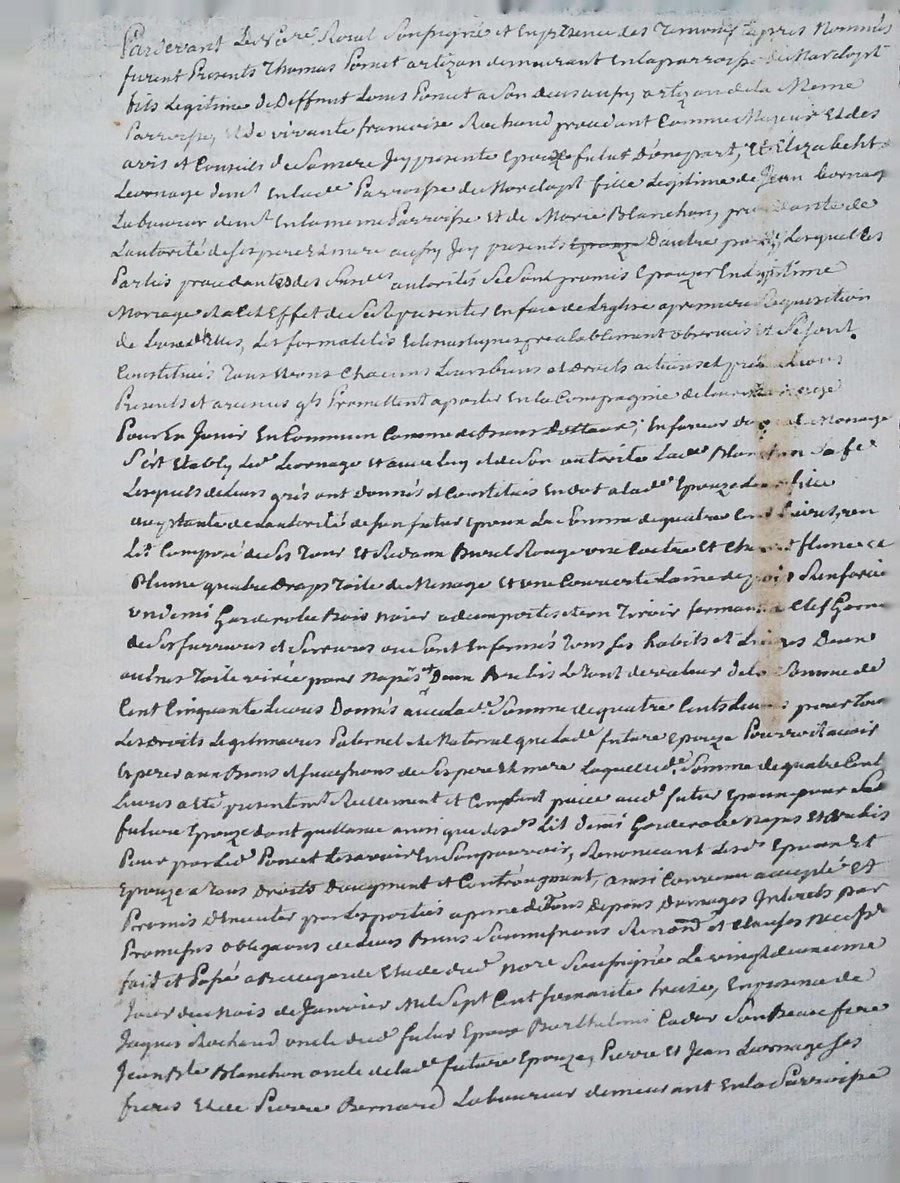 Pardevant Le Nore Roial Soussigné et En présence des Temoins apres Nommés
furent Presents Thomas Poncet artizan demeurant En la parroisse de Marclopt
fils Legitime de Deffunt Louis Poncet a Son deces aussy artizan de la Meme
Parroisse, et de vivante francoise Rochand procedant Comme Majeur Et des
avis et Conseils de Sa mere Icy presente Epoux futur D'une part, Et Elizabeth
Levrnage demt En lade Parroisse de Marclopt fille Legitime de Jean Levrnage
Laboureur demt En la meme Parroisse Et de Marie Blanchon, procedante de
L'autorité de ses pere et mere aussy Icy presents Epouze D'autre part, Lesquelles
Parties procedantes des Susdes autorités Se Sont promis Epouzer En Legitime
Mariage et a Cet Effet de Se Representer En face de L'eglise a premiere Requisition
de L'une d'elles, Les formalités prealablement observées Et Se sont
Constitués Tous Leurs biens et Droits actions et pretentions
Presents et avenirs qls Promettent aporter En la Compagnie de leur Mariage
Pour En Jouir En Commun Comme de Biens Dottaux, En faveur du Mariage
S'est Etably Led Levrnage et avec luy et de Son autorité Lade Blanchon Sa fe
Lesquels de Leurs grés ont donnés et Constitués En dot a lade Epouze Leur fille
acceptante de L'autorité de son futur Epoux La Somme de quatre Cent Livres, un
Lit Composé de Ses Tour Et Burel Rouge une Coetre Et Plume
Plume quatre Draps Toile de Menage Et une Couverte Laine de Renforcée
un demi Garderobe Bois noier a deux portes et un Tiroir fermant a Clef Garni
de Ses ferrures et Serrures ou Sont Enfermés Tous Ses habits et Linges Deux
autres Toile pour Napes et Deux Le Tout de valeur de la Somme de
Cent Cinquante Livres Donnés avec lade Somme de quatre Cents Livres pour Tous
Les Droits Legitimaires Paternel et Maternel que lade future Epouze Pourroit avoir
Esperer aux Biens et successions de Ses pere Et mere Laquelle de Somme de quatre Cent
Livres a Eté presentemt Reellement et Comptant paiée aud futur Epoux pour Sad
future Epouze dont quittance ainsi que desds Lit Demi Garderobe Napes Et
Pour par Led Poncet Les avoir En Son pouvoir, Renonceant Lesds Epoux Et
Epouze a Tous Droits D'augment et Contrôaugment, ainsi Convenu accepté Et
Promis D'executer par Les parties a peine de Tous Depens Dommages Interets par
Promesses obligaons de Leurs Biens Soumissions Renonõns et Clauses necessres
fait et Passé a Bellegarde Etude dud Nore Soussigné Le vingt deuxieme
Jour du Mois de Janvier Mil Sept Cent soixante treize, En presence de
Jaques Rochand oncle dud futur Epoux Barthelemi Cador Son Beau frere
Jean Bte Blanchon oncle de lade future Epouze, Pierre Et Jean Levrnage Ses
freres Et de Pierre Bernard Laboureur demeurant En la Parroisse